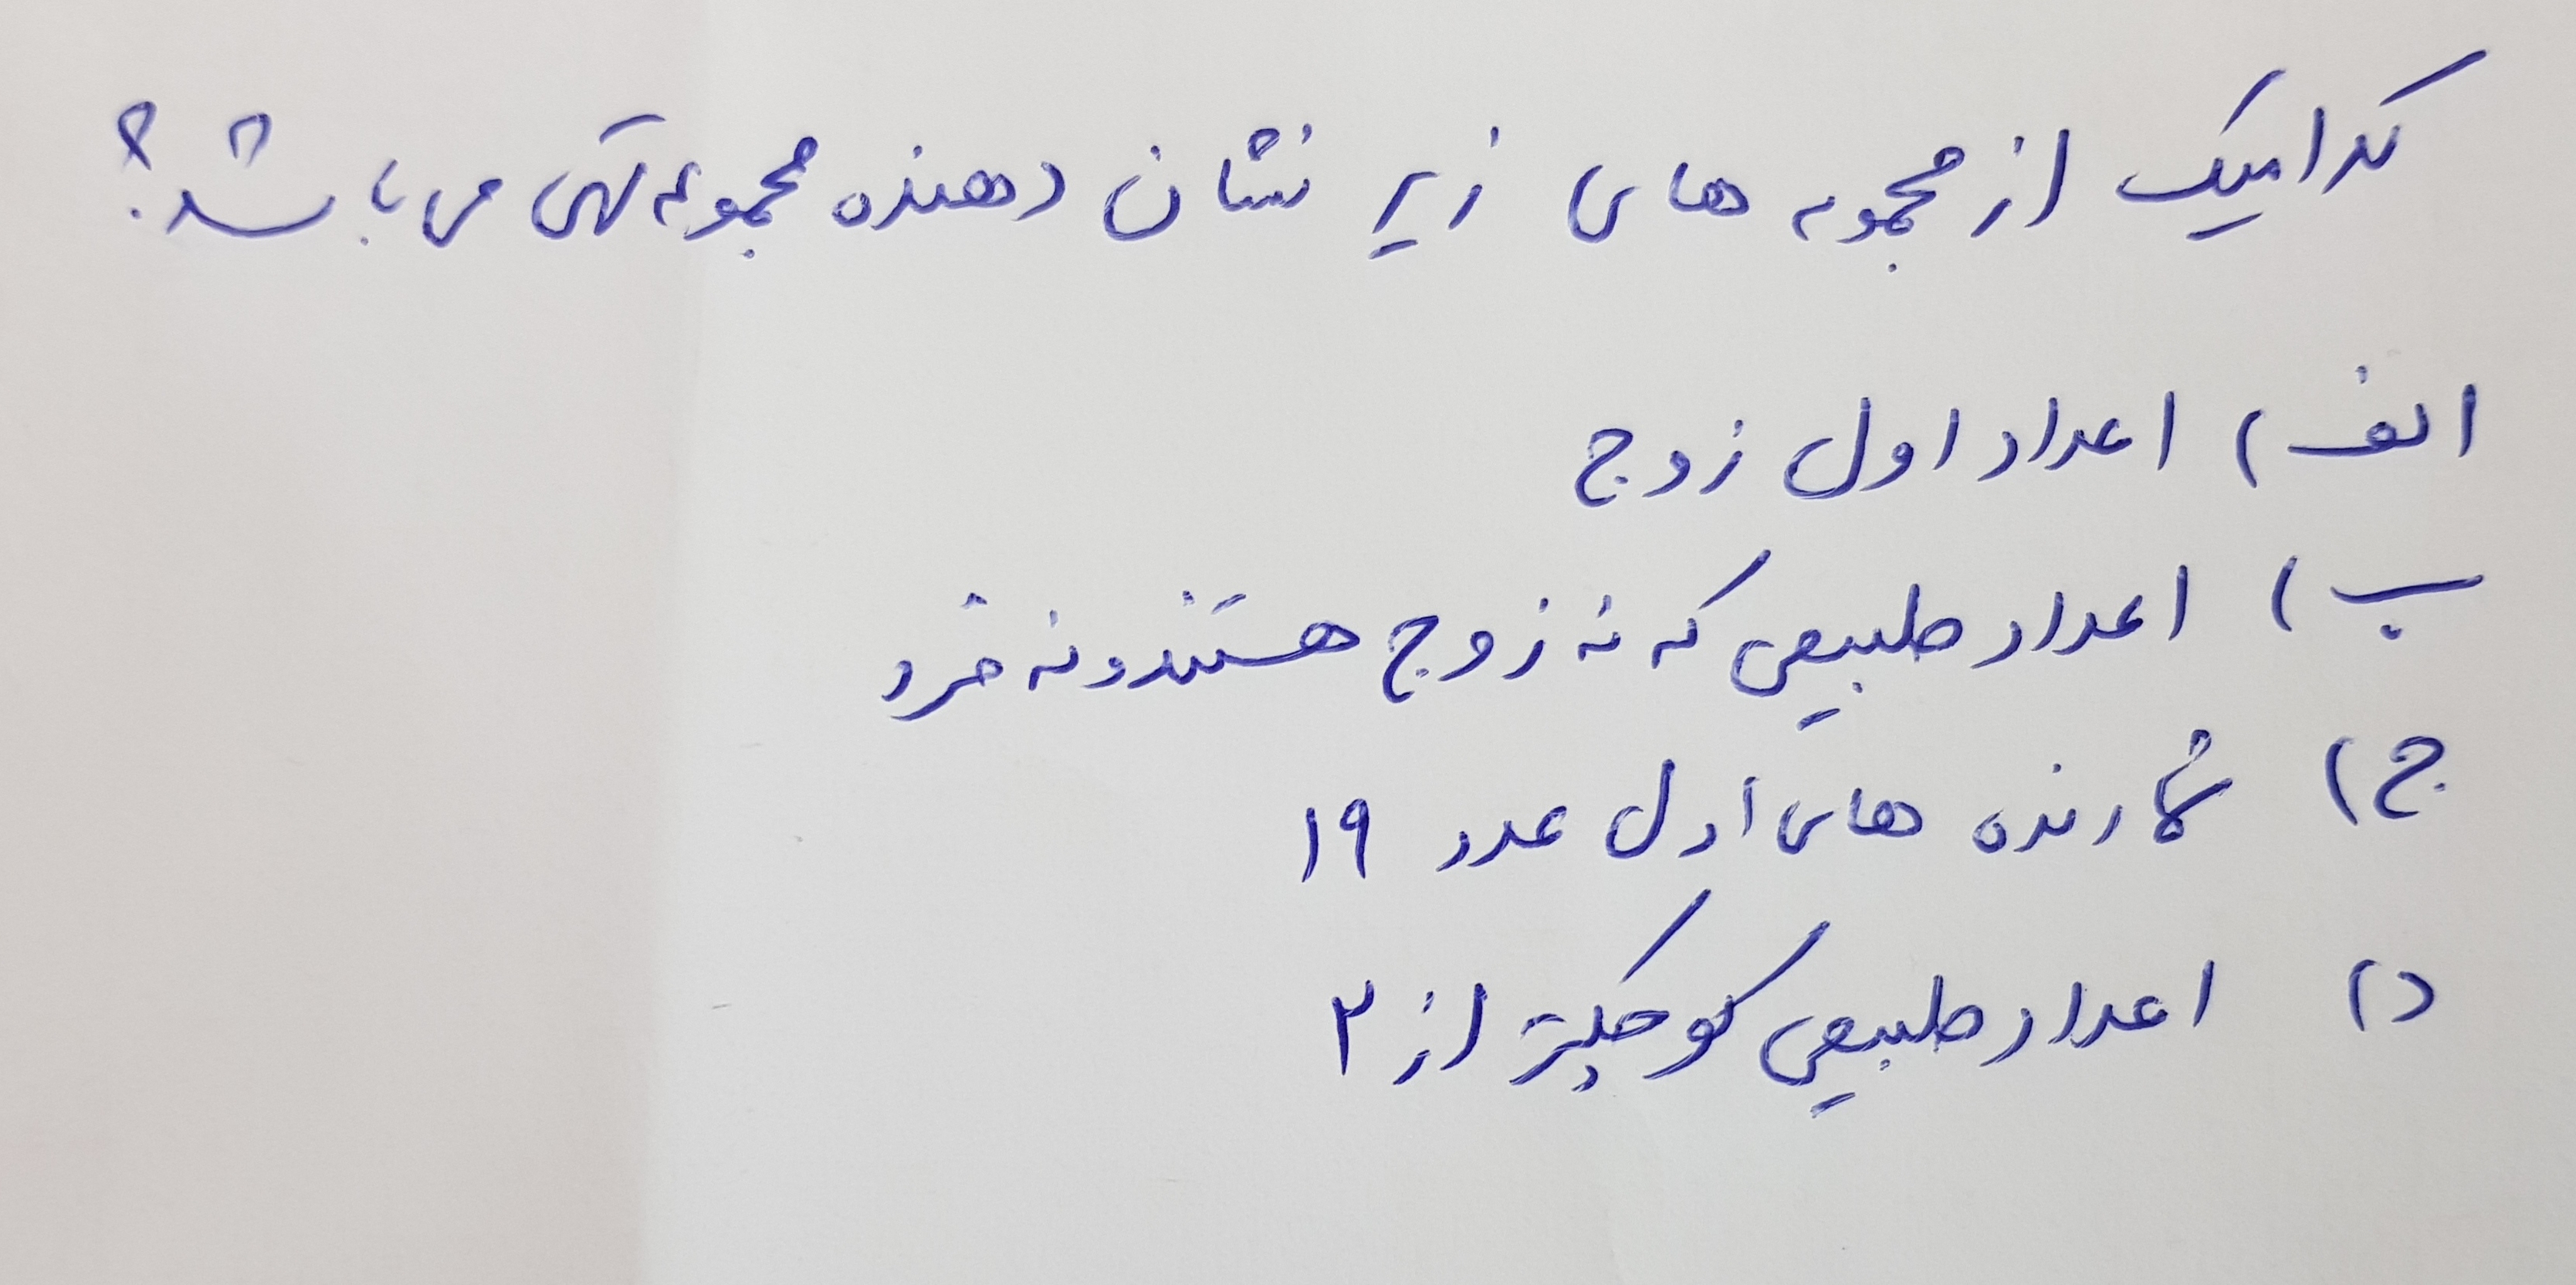 کدامیک از مجموعه های زیر نشان دهنده مجموعه تهی می باشد؟
الف) اعداد اول زوج
ب) اعداد طبیعی که نه زوج هستند و نه فرد
ج) شمارنده های اول عدد ۱۹
د) اعداد طبیعی کوچکتر از ۲